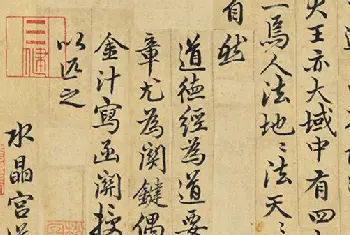 大王亦大域中有四
一焉人法地〻法天〻
自然
道德經為道要
章尤為関鍵偶
金汁寫函開授
以匹之
水晶宮道